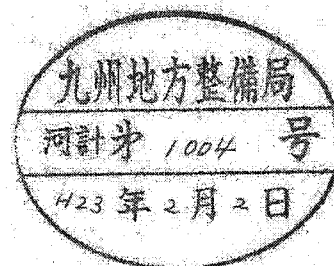 九州地方整備局
河計第 1004 号
H23年2月2日